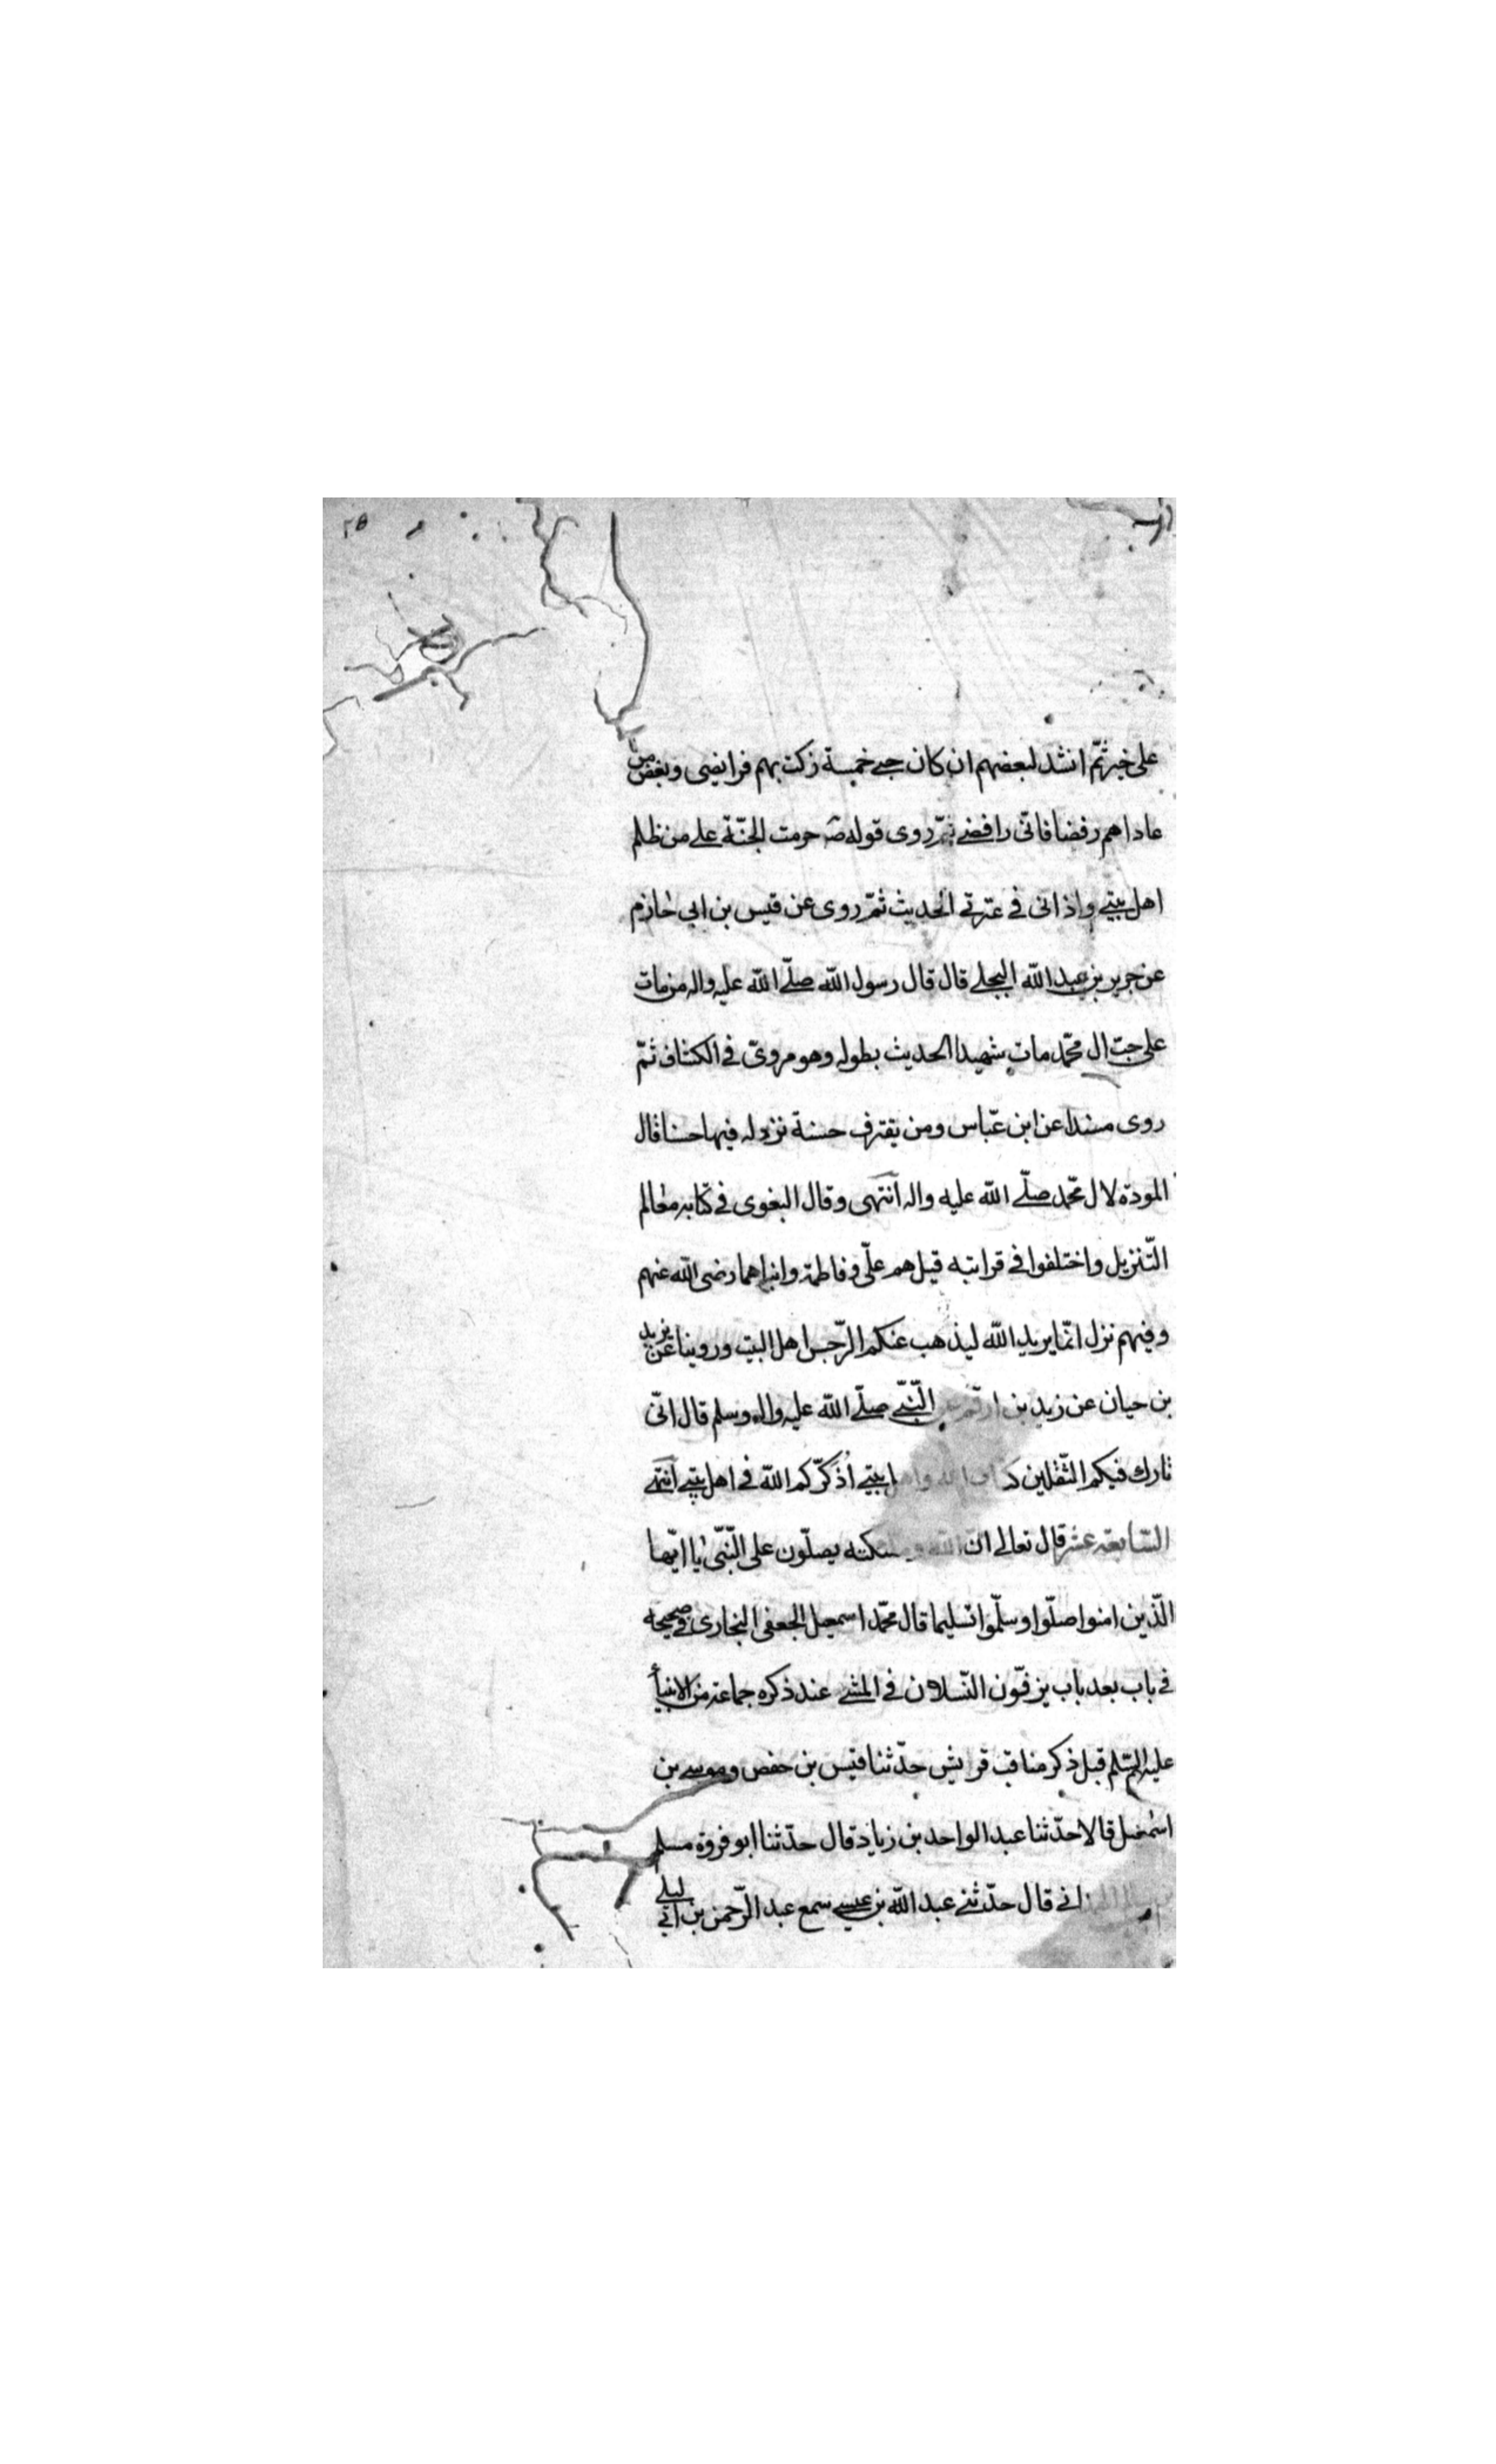 على خبر ثمّ انشد لبعضهم ان كان حبي خمسة زكت بهم فرايضى وبغض من
عاداهم رفضا فانّى رافضى ثمّ روى قوله صَ حرمت الجنّة على من ظلم
اهل بيتى واذانى فى عترتى الحديث ثمّ روى عن قيس بن ابى حازم
عن جرير بن عبد اللّه البجلى قال قال رسول اللّه صلّى اللّه عليه واله من مات
على حبّ ال محمّد مات شهيدا الحديث بطوله وهو مروىّ فى الكشاف ثمّ
روى مسندا عن ابن عبّاس ومن يقترف حسنة نزد له فيها حسنا قال
المودّة لال محمّد صلّى اللّه عليه واله انتهى وقال البغوى فى كتابه معالم
التّنزيل واختلفوا فى قرابته قيل هم علّى وفاطمة وابناهما رضى اللّه عنهم
وفيهم نزل انّما يريد اللّه ليذهب عنكم الرّجس اهل البيت وروينا عن يزيد
بن حيان عن زيد بن ارقم عن النّبّى صلّى اللّه عليه واله وسلم قال انّى
تارك فيكم الثّقلين كتاب اللّه واهل بيتى أذكّركم اللّه فى اهل بيتى انتهى
السّابعة عشر قال تعالى ان اللّه وملئكته يصلّون على النّبّى يا ايّها
الّذين امنوا صلّوا وسلّموا تسليما قال محمّد اسمعيل الجعفى البخارى فى صحيحه
فى باب بعد باب يزفّون النّسلان فى المشى عند ذكره جماعة من الانبيأ
عليهم السّلم قبل ذكر مناقب قريش حدّثنا قيس بن حفص وموسى بن
اسمعيل قالا حدّثنا عبد الواحد بن زياد قال حدّثنا ابو فروة مسلم
بن سالم الهمدانى قال حدّثنى عبد اللّه بن عيسى سمع عبد الرّحمن بن ابى ليلى